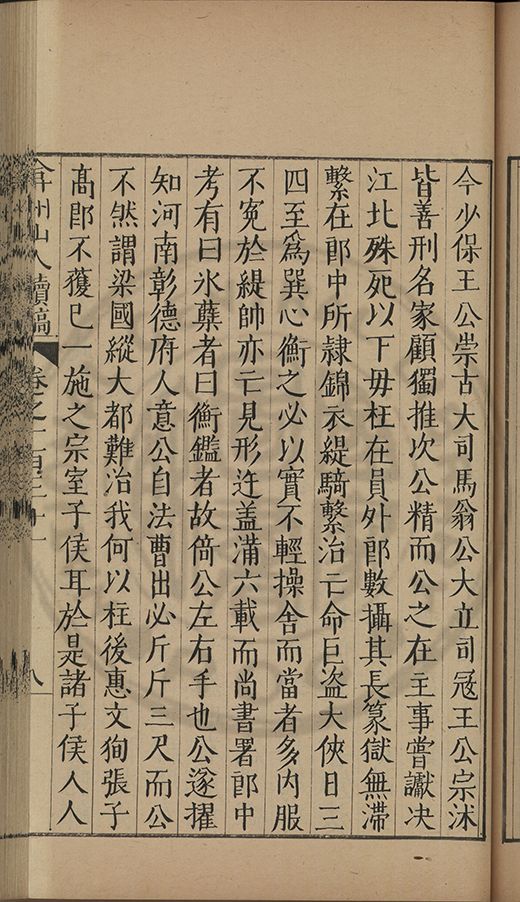 今少保王公崇古大司馬翁公大立司冦王公宗沭
皆善刑名家顧獨推次公精而公之在主事嘗讞决
江北殊死以下毋枉在員外郎數攝其長篆獄無滯
繫在郎中所隷錦衣緹騎繫治亡命巨盗大俠日三
四至爲巽心衡之必以實不輕操舍而當者多内服
不寃於緹帥亦亡見形迕盖滿六載而尚書署郎中
考有曰氷蘗者曰衡鑑者故倚公左右手也公遂擢
知河南彰德府人意公自法曹出必斤斤三尺而公
不然謂梁國縱大都難治我何以柱後惠文狥張子
髙郎不獲已一施之宗室子侯耳於是諸子侯人人
弇州山人續稿 卷之一百三十一 八